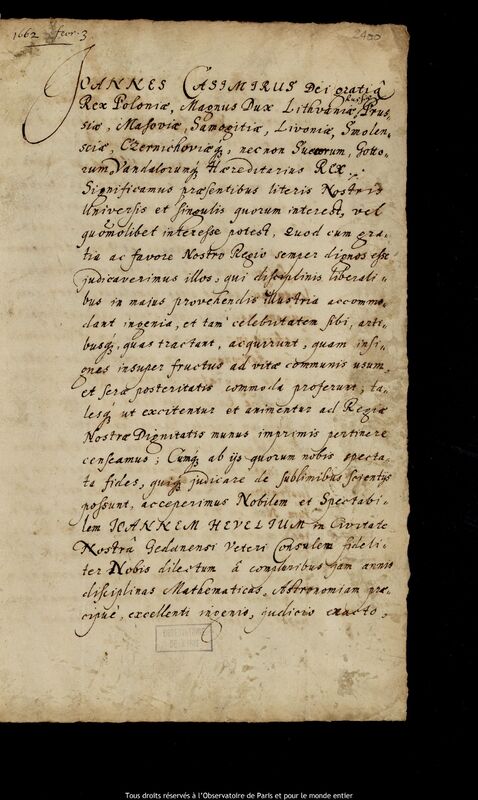 1662 febr. 3
2400
JOANNES CASIMIRUS Dei gratiâ
Rex Poloniæ, Magnus Dux Lithvaniæ, Russiæ, Prus-
siæ, Masoviæ, Samogitiæ, Livoniæ, Smolen,,
sciæ, Czernichoviæq;, necnon Suecorum, Gotto,,
rum, Vandalorumq; Hæreditarius REX.
Significamus præsentibus literis Nostris
Universis et singulis quorum interest, vel
quomolibet interesse potest, Quod cum gra,,
tia ac favore Nostro Regio semper dignos esse
judicaverimus illos, qui disciplinis liberali,,
bus in majus provehendis illustria accommo,,
dant ingenia, et tam celebritatem sibi, arti,,
busq;, quas tractant, acquirunt, quam insi,,
gnes insuper fructus ad vitæ communis usum,
et seræ posteritatis commoda proferunt; ta,,
lesq; ut excitentur et animentur ad Regiæ
Nostræ Dignitatis munus imprimis pertinere
censeamus; Cumq; ab ijs quorum nobis specta,,
ta fides, quiq; judicare de sublimibus scientijs
possunt, acceperimus Nobilem et Spectabi,,
lem JOANNEM HEVELIUM in Civitate
Nostrâ Gedanensi Veteri Consulem fideli,,
ter Nobis dilectum â compluribus jam annis
disciplinas Mathematicas, Astronomiam præ,,
cipuè, excellenti ingenio, judicio exacto,
OBSERVATOIRE
DE PARIS
Tous droits réservés à l'Observatoire de Paris et pour le monde entier